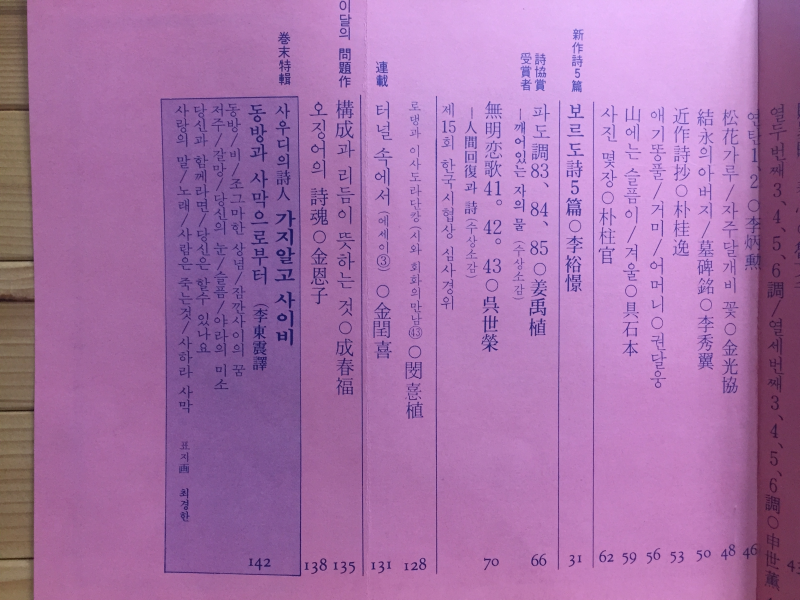 열두번째 3, 4, 5, 6調/열세번째 3, 4, 5, 6調○申世薰
43
연탄 1, 2○李炳勲 46
松花가루/자주달개비 꽃○金光協 48
結氷의아버지/墓碑銘○李秀翼 50
近作詩抄○朴桂逸 53
애기똥풀/거미/어머니○권달웅 56
山에는 슬픔이/겨울○具石本 59
사진 몇장○朴柱官 62
新作詩5篇
보르도詩5篇○李裕憬 31
詩協賞
受賞者
파도調83、84、85○姜禹植 66
—깨어있는 자의 물(수상소감)
無明恋歌41。42。43○呉世榮 70
—人間回復과 詩(수상소감)
제15회 한국시협상 심사경위
로댕과 이사도라단캉(시와 회화의만남㊸)○閔憙植 128
連載
터널 속에서(에세이③)○金閏喜 131
이달의 問題作
構成과 리듬이 뜻하는 것○成春福 135
오징어의 詩魂○金恩子 138
巻末特輯
사우디의詩人 가지알고 사이비
동방과 사막으로부터 (李東震譯) 142
동방/비/조그마한 상념/잠깐사이의 꿈
저주/갈망/당신의 눈/슬픔/야라의 미소
당신과 함께라면/당신은 할수 있나요
사랑의 말/노래/사람은 죽는것/사하라 사막
표지画 최경한